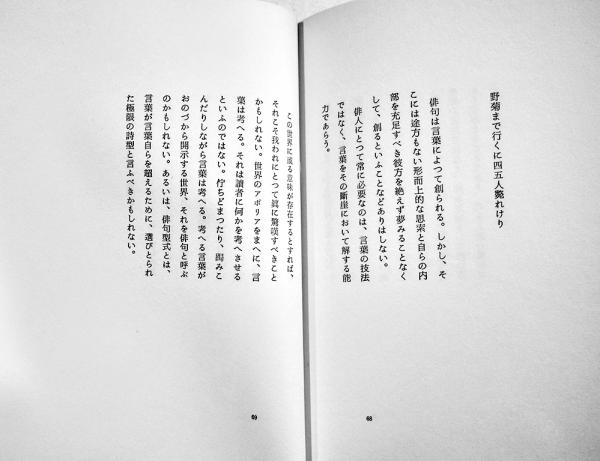 野菊まで行くに四五人斃れけり
俳句は言葉によつて創られる。しかし、そ
こには途方もない形而上的な思索と自らの内
部を充足すべき彼方を絶えず夢みることなく
して、創るといふことなどありはしない。
俳人にとつて常に必要なのは、言葉の技法
ではなく、言葉をその断崖において解する能
力であらう。
68
この世界に或る意味が存在するとすれば、
それこそ我われにとつて眞に驚嘆すべきこと
かもしれない。世界のアポリアをまへに、言
葉は考へる。それは讀者に何かを考へさせる
といふのではない。佇ちどまつたり、跼みこ
んだりしながら言葉は考へる。考へる言葉が
おのづから開示する世界、それを俳句と呼ぶ
のかもしれない。あるいは、俳句型式とは、
言葉が言葉自らを超えるために、選びとられ
た極限の詩型と言ふべきかもしれない。
69